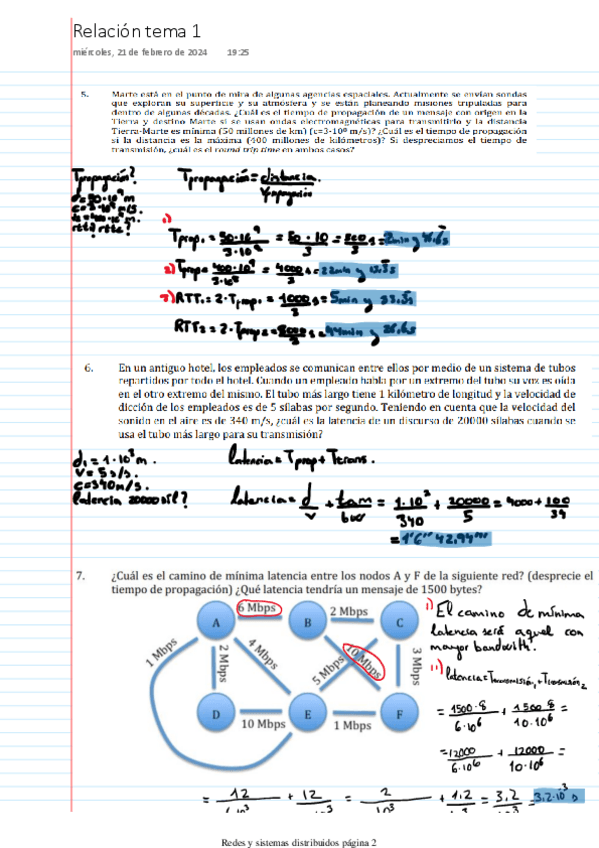 Relación tema 1
miércoles, 21 de febrero de 2024 19:25
5. Marte está en el punto de mira de algunas agencias espaciales. Actualmente se envían sondas
que exploran su superficie y su atmósfera y se están planeando misiones tripuladas para
dentro de algunas décadas. ¿Cuál es el tiempo de propagación de un mensaje con origen en la
Tierra y destino Marte si se usan ondas electromagnéticas para transmitirlo y la distancia
Tierra-Marte es mínima (50 millones de km) (c=3·10⁸ m/s)? ¿Cuál es el tiempo de propagación
si la distancia es la máxima (400 millones de kilómetros)? Si despreciamos el tiempo de
transmisión, ¿cuál es el round trip time en ambos casos?
Tpropagación?
Tpropagación = distancia / Vpropagación
d=50·10⁹m
c=3·10⁸m/s.
1)
Tprop. = 50·10⁹ / 3·10⁸ = 50·10 / 3 = 500 / 3 s = 2min y 46.6s
2) Tprop = 400·10⁹ / 3·10⁸ = 4000 / 3 s = 22min y 13.3s
3) RTT₁ = 2·Tprop₁ = 1000 / 3 s = 5min y 33.3s
RTT₂ = 2·Tprop₂ = 8000 / 3 s = 44min y 26.6s
6. En un antiguo hotel, los empleados se comunican entre ellos por medio de un sistema de tubos
repartidos por todo el hotel. Cuando un empleado habla por un extremo del tubo su voz es oída
en el otro extremo del mismo. El tubo más largo tiene 1 kilómetro de longitud y la velocidad de
dicción de los empleados es de 5 sílabas por segundo. Teniendo en cuenta que la velocidad del
sonido en el aire es de 340 m/s, ¿cuál es la latencia de un discurso de 20000 sílabas cuando se
usa el tubo más largo para su transmisión?
d₁ = 1·10³m.
V = 5 s/s.
c=340m/s.
latencia = Tprop + Ttrans.
latencia 20000 síl?
latencia = d / v + tam / bw = 1·10³ / 340 + 20000 / 5 = 4000 + 100 / 34
= 1°6'' 42.94'''
7. ¿Cuál es el camino de mínima latencia entre los nodos A y F de la siguiente red? (desprecie el
tiempo de propagación) ¿Qué latencia tendría un mensaje de 1500 bytes?
6 Mbps
2 Mbps
A
B
C
1 Mbps
2 Mbps
4 Mbps
5 Mbps
10 Mbps
3 Mbps
D
E
F
10 Mbps
1 Mbps
1) El camino de mínima
latencia será aquel con
mayor bandwith.
11) latencia = Transmisión₁ + Transmisión₂
= 1500·8 / 6·10⁶ + 1500·8 / 10·10⁶ =
= 12000 / 6·10⁶ + 12000 / 10·10⁶ =
= 12 / 6·10³ + 12 / 10·10³ = 2 / 10³ + 1.2 / 10³ = 3.2 / 10³ = 3.2·10⁻³ s
Redes y sistemas distribuidos página 2